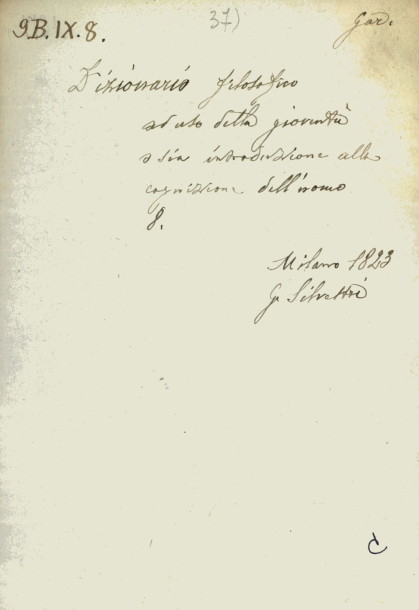 9.B.IX.8.
37)
Gar.
Dizionario filosofico
ad uso della gioventù
o sia introduzione alla
cognizione dell'uomo
8.
Milano 1823
G. Silvestri
C